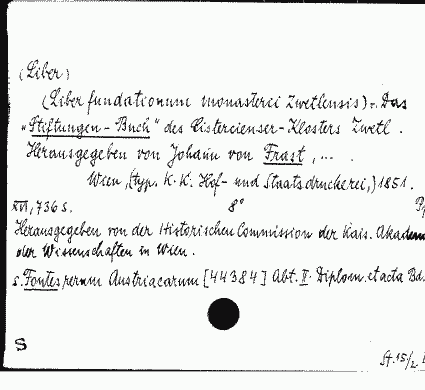 (Liber)
(Liber fundationum monasterii Zwetlensis). Das
"Stiftungen-Buch" des Cistercienser-Klosters Zwetl.
Herausgegeben von Johann von Frast,...
Wien, (typ. K. K. Hof- und Staatsdruckerei,) 1851.
XVI, 736 S. 8°
Herausgegeben von der Historischen Commission der Kais. Akadem
der Wissenschaften in Wien.
s. Fontes rerum Austriacarum [44384] Abt. II. Diplom. et acta Bd.
S
St. 15/2